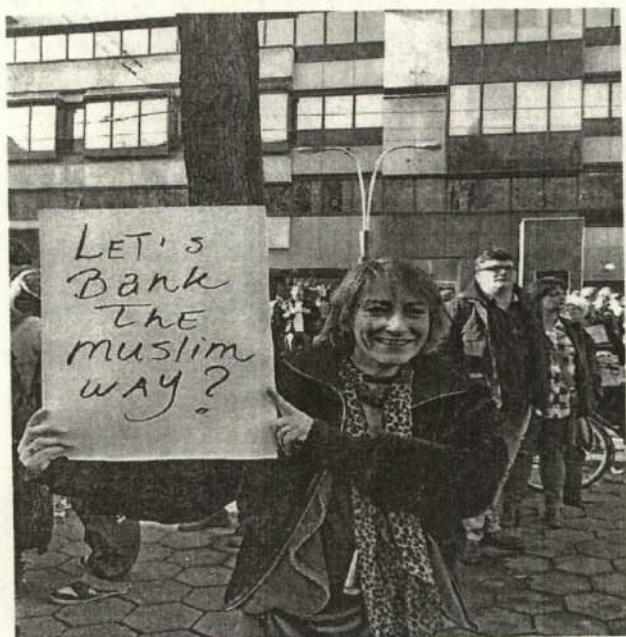 LET'S
Bank
THE
muslim
WAY?